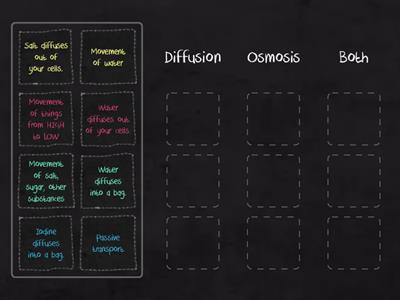 Diffusion
Osmosis
Both
Salt diffuses
out of
your cells.
Movement
of water
Movement
of things
from HIGH
to LOW
Water
diffuses out
of your cells.
Movement
of salt,
sugar, other
substances
Water
diffuses
into a bag.
Iodine
diffuses
into a bag.
Passive
transport